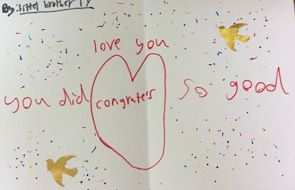 By: littel brother Ty
love you
you did congraters so good